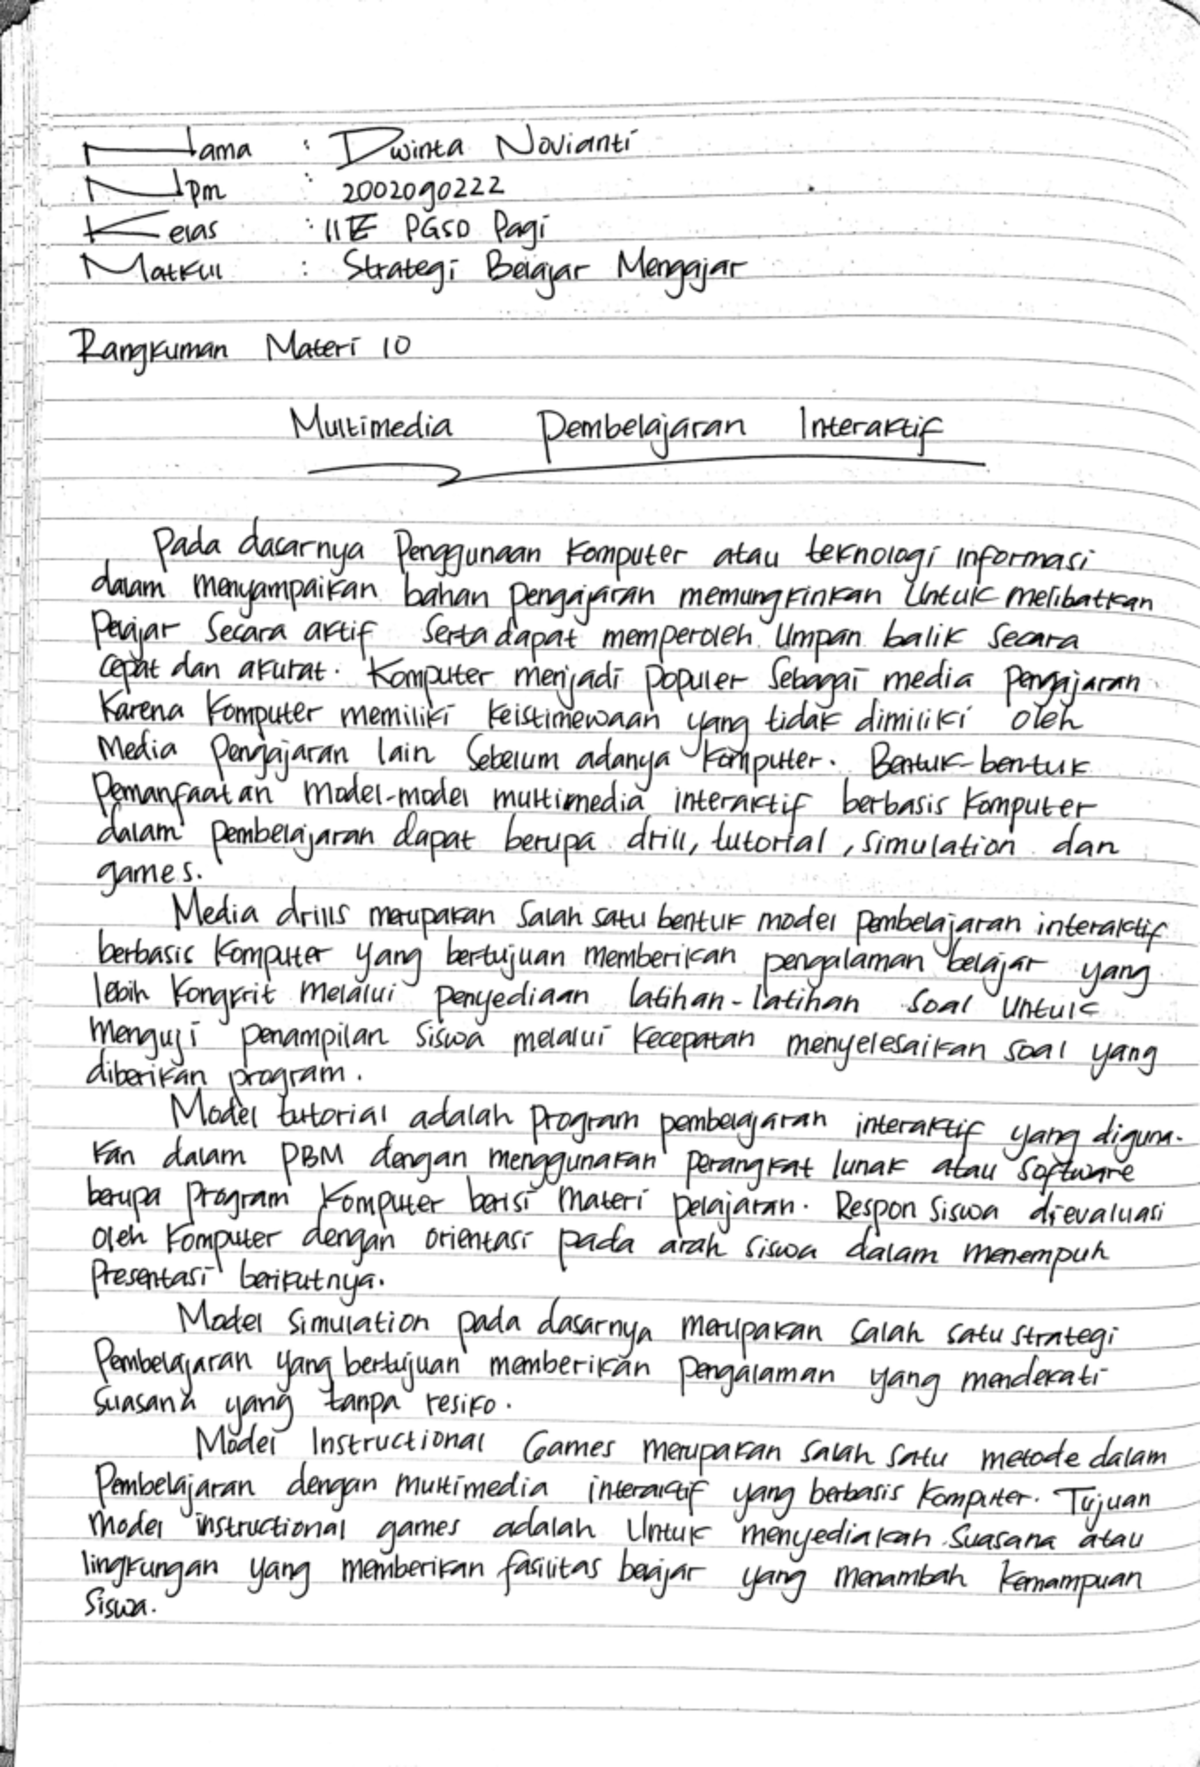 Nama : Dwinta Novianti
Npm : 2002090222
Kelas : IIE PGSD Pagi
Matkul : Strategi Belajar Mengajar
Rangkuman Materi 10
Multimedia Pembelajaran Interaktif
Pada dasarnya Penggunaan Komputer atau teknologi informasi
dalam menyampaikan bahan pengajaran memungkinkan Untuk melibatkan
Pelajar Secara aktif Serta dapat memperoleh Umpan balik Secara
cepat dan akurat. Komputer menjadi populer Sebagai media pengajaran
Karena Komputer memiliki Keistimewaan yang tidak dimiliki oleh
Media Pengajaran lain Sebelum adanya Komputer. Bentuk-bentuk
Pemanfaatan Model-model multimedia interaktif berbasis Komputer
dalam pembelajaran dapat berupa drill, tutorial, simulation dan
games.
Media drills merupakan Salah satu bentuk model pembelajaran interaktif
berbasis Komputer yang bertujuan memberikan pengalaman belajar yang
lebih Kongkrit melalui penyediaan latihan-latihan soal untuk
Menguji penampilan Siswa melalui Kecepatan menyelesaikan soal yang
diberikan program.
Model tutorial adalah program pembelajaran interaktif yang diguna-
kan dalam PBM dengan menggunakan perangkat lunak atau software
berupa program Komputer berisi Materi pelajaran. Respon Siswa dievaluasi
oleh Komputer dengan orientasi pada arah siswa dalam menempuh
Presentasi berikutnya.
Model Simulation pada dasarnya merupakan Salah satu strategi
Pembelajaran yang bertujuan memberikan Pengalaman yang mendekati
Suasana yang tanpa resiko.
Model Instructional Games merupakan salah satu metode dalam
Pembelajaran dengan multimedia interaktif yang berbasis Komputer. Tujuan
model instructional games adalah Untuk menyediakan Suasana atau
lingkungan yang memberikan fasilitas belajar yang menambah Kemampuan
Siswa.